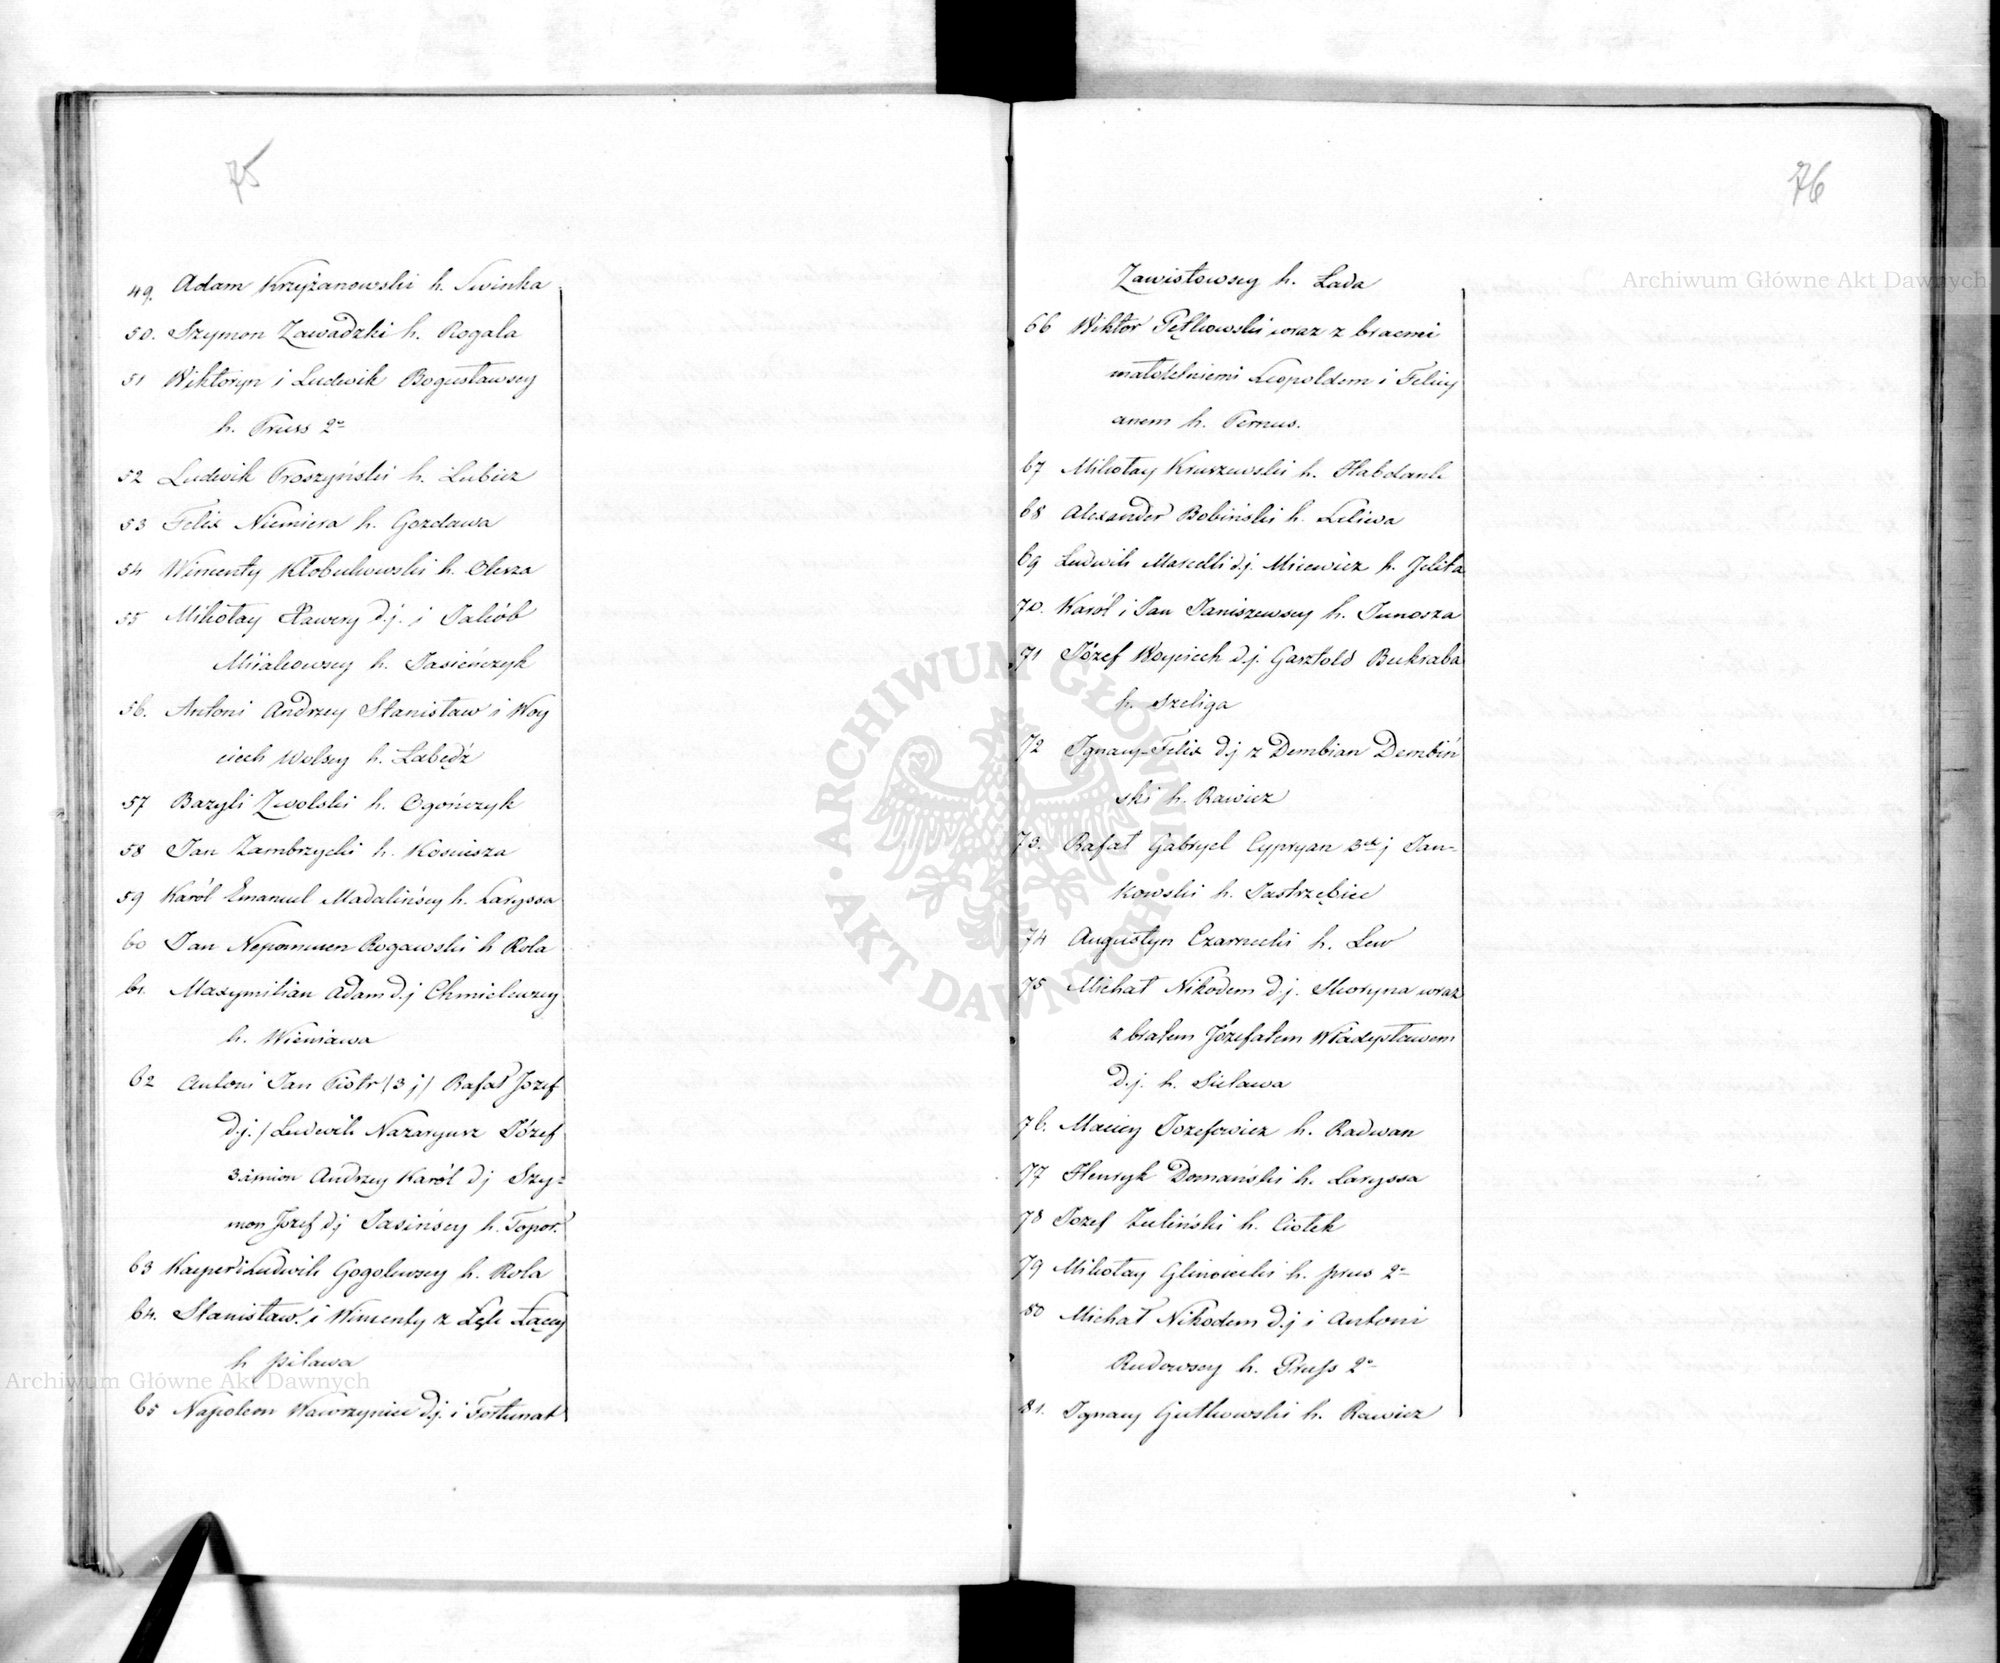 75
49. Adam Krzyżanowski h. Swinka
50. Szymon Zawadzki h. Rogala
51 Wiktoryn i Ludwik Bogusławscy
h. Pruss 2o
52 Ludwik Proszyński h. Lubicz
53 Felix Niemiera h. Gozdawa
54 Wincenty Kłobukowski h. Oksza
55 Mikołay Xawery d.j. i Jakób
Miiakowscy h. Jasieńczyk
56. Antoni Andrzey Stanisław i Woy
ciech Wolscy h. Łabędź
57 Bazyli Zwolski h. Ogończyk
58 Jan Zambrzycki h. Kościesza
59 Karól Emanuel Madalińscy h. Laryssa
60 Jan Nepomucen Rogawski h Rola
61. Maxymilian Adam d.j Chmielewscy
h. Wieniawa
62 Antoni Jan Piotr (3 j) Rafał Jozef
d.j. / Ludwik Nazaryusz Józef
3 imion Andrzey Karól dj Szy=
mon Jozef dj Jasińscy h. Topor.
63 Kacper i Ludwik Gogolewscy h. Rola
64. Stanisław i Wincenty z Łęk Łąccy
h Pilawa
65 Napoleon Wawrzyniec dj. i Fortunat
76
Zawistowscy h. Łada
66 Wiktor Pętkowski wraz z bracmi
małoletniemi Leopoldem i Felicy
anem h. Pernus.
67 Mikołay Kruszewski h. Habdank
68 Alexander Bobiński h. Leliwa
69 Ludwik Marcelli d.j. Micewicz h. Jelita
70. Karól i Jan Janiszewscy h. Junosza
71 Józef Woyciech d.j. Gasztold Bukraba
h. Szeliga
72 Ignacy Felix dj z Dembian Dembiń
ski h. Rawicz
73. Rafał Gabryel Cypryan 3ch j Jan-
kowski h. Jastrzębiec
74 Augustyn Czarnecki h. Lew
75 Michał Nikodem d.j. Skoryna wraz
z bratem Józefatem Władysławem
d.j. h. Sielawa
76. Maciey Jozefowicz h. Radwan
77 Henryk Domański h. Laryssa
78 Jozef Zuliński h. Ciołek
79 Mikołay Glinoiecki h. prus 2o
80 Michał Nikodem d.j i Antoni
Rudowscy h. Pruss 2o
81. Ignacy Gutkowski h. Rawicz
Archiwum Główne Akt Dawnych
Archiwum Główne Akt Dawnych
ARCHIWUM GŁÓWNE
AKT DAWNYCH